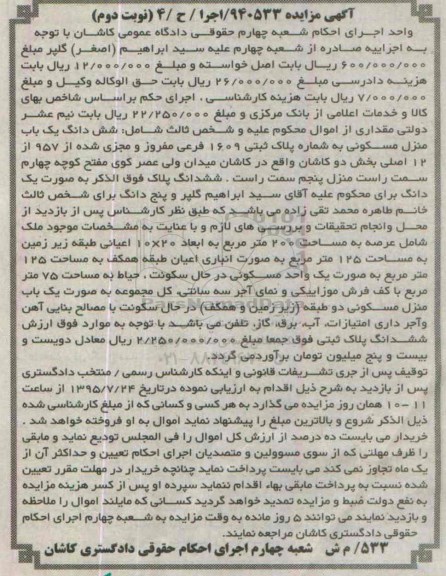 آگهی مزایده ۹۴۰۵۳۳/اجرا / ح /۴ (نوبت دوم)
واحد اجرای احکام شعبه چهارم حقوقی دادگاه عمومی کاشان با توجه
به اجراییه صادره از شعبه چهارم علیه سید ابراهیم (اصغر) گلپر مبلغ
۶۰۰/۰۰۰/۰۰۰ ریال بابت اصل خواسته و مبلغ ۱۲/۰۰۰/۰۰۰ ریال بابت
هزینه دادرسی مبلغ ۲۶/۰۰۰/۰۰۰ ریال بابت حق الوکاله وکیل و مبلغ
۷/۰۰۰/۰۰۰ ریال بابت هزینه کارشناسی . اجرای حکم براساس شاخص بهای
کالا و خدمات اعلامی از بانک مرکزی و مبلغ ۲۲/۲۵۰/۰۰۰ ریال بابت نیم عشر
دولتی مقداری از اموال محکوم علیه و شخص ثالث شامل: شش دانگ یک باب
منزل مسکونی به شماره پلاک ثبتی ۱۶۰۹ فرعی مفروز و مجزی شده از ۹۵۷ از
۱۲ اصلی بخش دو کاشان واقع در کاشان میدان ولی عصر کوی مفتح کوچه چهارم
سمت راست منزل پنجم سمت راست . ششدانگ پلاک فوق الذکر به صورت یک
دانگ برای محکوم علیه آقای سید ابراهیم گلپر و پنج دانگ برای شخص ثالث
خانم طاهره محمد تقی زاده می باشد که طبق نظر کارشناس پس از بازدید از
محل وانجام تحقیقات و بررسی های لازم و با عنایت به مشخصات موجود ملک
شامل عرصه به مساحت ۲۰۰ متر مربع به ابعاد ۱۰×۲۰ اعیانی طبقه زیر زمین
به مساحت ۱۲۵ متر مربع به صورت انباری اعیان طبقه همکف به مساحت ۱۲۵
متر مربع به صورت یک واحد مسکونی در حال سکونت . حیاط به مساحت ۷۵ متر
مربع با کف فرش موزاییکی و نمای آجر سه سانتی. کل مجموعه به صورت یک باب
منزل مسکونی دو طبقه (زیر زمین و همکف) در حال سکونت با مصالح بنایی آهن
وآجر داری امتیازات، آب، برق، گاز، تلفن می باشد با توجه به موارد فوق ارزش
ششدانگ پلاک ثبتی فوق جمعا مبلغ ۲/۲۵۰/۰۰۰/۰۰۰ ریال معادل دویست و
بیست و پنج میلیون تومان برآوردمی گردد.
توقیف پس از جری تشریفات قانونی و اینکه کارشناس رسمی / منتخب دادگستری
پس از بازدید به شرح ذیل اقدام به ارزیابی نموده درتاریخ ۱۳۹۵/۷/۲۴ از ساعت
۱۰-۱۱ همان روز مزایده می گذارد به هر کسی و کسانی که از مبلغ کارشناسی شده
ذیل الذکر شروع و بالاترین مبلغ را پیشنهاد نماید اموال به او فروخته خواهد شد .
خریدار می بایست ده درصد از ارزش کل اموال را فی المجلس تودیع نماید و مابقی
را ظرف مهلتی که از سوی مسوولین و متصدیان اجرای احکام تعیین و حداکثر آن از
یک ماه تجاوز نمی کند می بایست پرداخت نماید چنانچه خریدار در مهلت مقرر تعیین
شده نسبت به پرداخت مابقی بهاء اقدام ننماید سپرده او پس از کسر هزینه مزایده
به نفع دولت ضبط و مزایده تمدید خواهد گردید کسانی که مایلند اموال را ملاحظه
و بازدید نمایند می توانند ۵ روز مانده به وقت مزایده به شعبه چهارم اجرای احکام
حقوقی دادگستری کاشان مراجعه نمایند.
۵۳۳/ م ش شعبه چهارم اجرای احکام حقوقی دادگستری کاشان